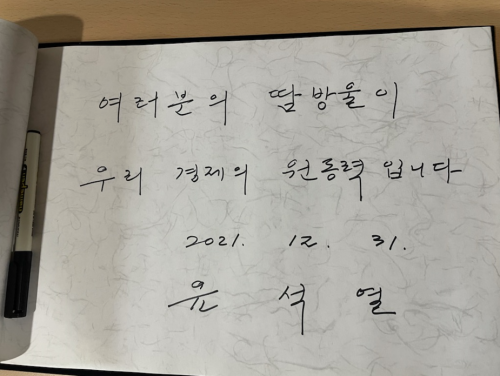 여러분의 땀방울이
우리 경제의 원동력 입니다
2021. 12. 31.
윤 석 열